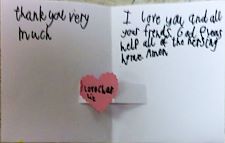 thank you very
much
I love you and all
your friends. God
help all of the nersing
home. Amen
I love